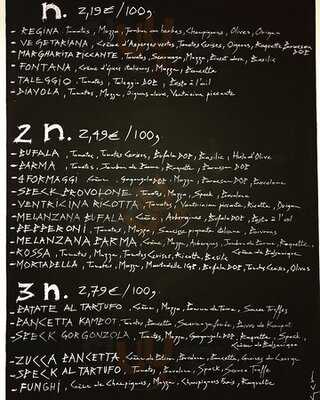 n. 2,19€/100g
- REGINA, Tomates, Mozza, Jambon aux herbes, Champignons, Olives, Origan
- VEGETARIANA, Crème d'Asperges vertes, Tomates Cerises, Oignons, Roquette, Parmesan DOP
- MARGHERITA PICCANTE, Tomates, Mozza, Basilic
- FONTANA, Crème d'épices italiennes, Mozza, Pancetta
- TALEGGIO, Tomates, Taleggio DOP,
- DIAVOLA, Tomates, Mozza, Oignons, Ventricina piccante
2 n. 2,49€/100g
- BUFALA, Tomates, Tomates Cerises, Bufala DOP, Basilic, Huile d'Olive
- PARMA, Tomates, Jambon de Parme, Roquette, Parmesan DOP
- 4 FORMAGGI, Crème, Gorgonzola DOP, Mozza, Parmesan DOP, Provolone
- SPECK PROVOLONE, Tomates, Mozza, Speck, Provolone
- VENTRICINA RICOTTA, Tomates, Ventricina piccante, Ricotta, Origan
- MELANZANA BUFALA, Crème, Aubergines, Bufala DOP,
- PEPPERONI, Tomates, Mozza, Saucisse piquante italienne, Poivrons
- MELANZANA PARMA, Crème, Mozza, Aubergines, Jambon de Parme, Roquette, Crème de Balsamique
- ROSSA, Tomates, Mozza, Tomates Cerises, Ricotta, Basilic
- MORTADELLA, Tomates, Mozza, Mortadelle IGP, Bufala DOP, Tomates Cerises, Olives
3 n. 2,79€/100g
- PATATE AL TARTUFO, Crème, Mozza, Pomme de Terre, Sauce Truffes
- PANCETTA KAMPOT, Tomates, Pancetta, Scamorza fumée, Poivre de Kampot
- SPECK GORGONZOLA, Tomates, Mozza, Gorgonzola DOP, Roquette, Speck, Crème de Balsamique
- ZUCCA PANCETTA, Crème de Potiron, Provolone, Pancetta, Graines de Courge
- SPECK AL TARTUFO, Tomates, Provolone, Speck, Sauce Truffe
- FUNGHI, Crème de Champignons, Mozza, Champignons Frais, Roquette